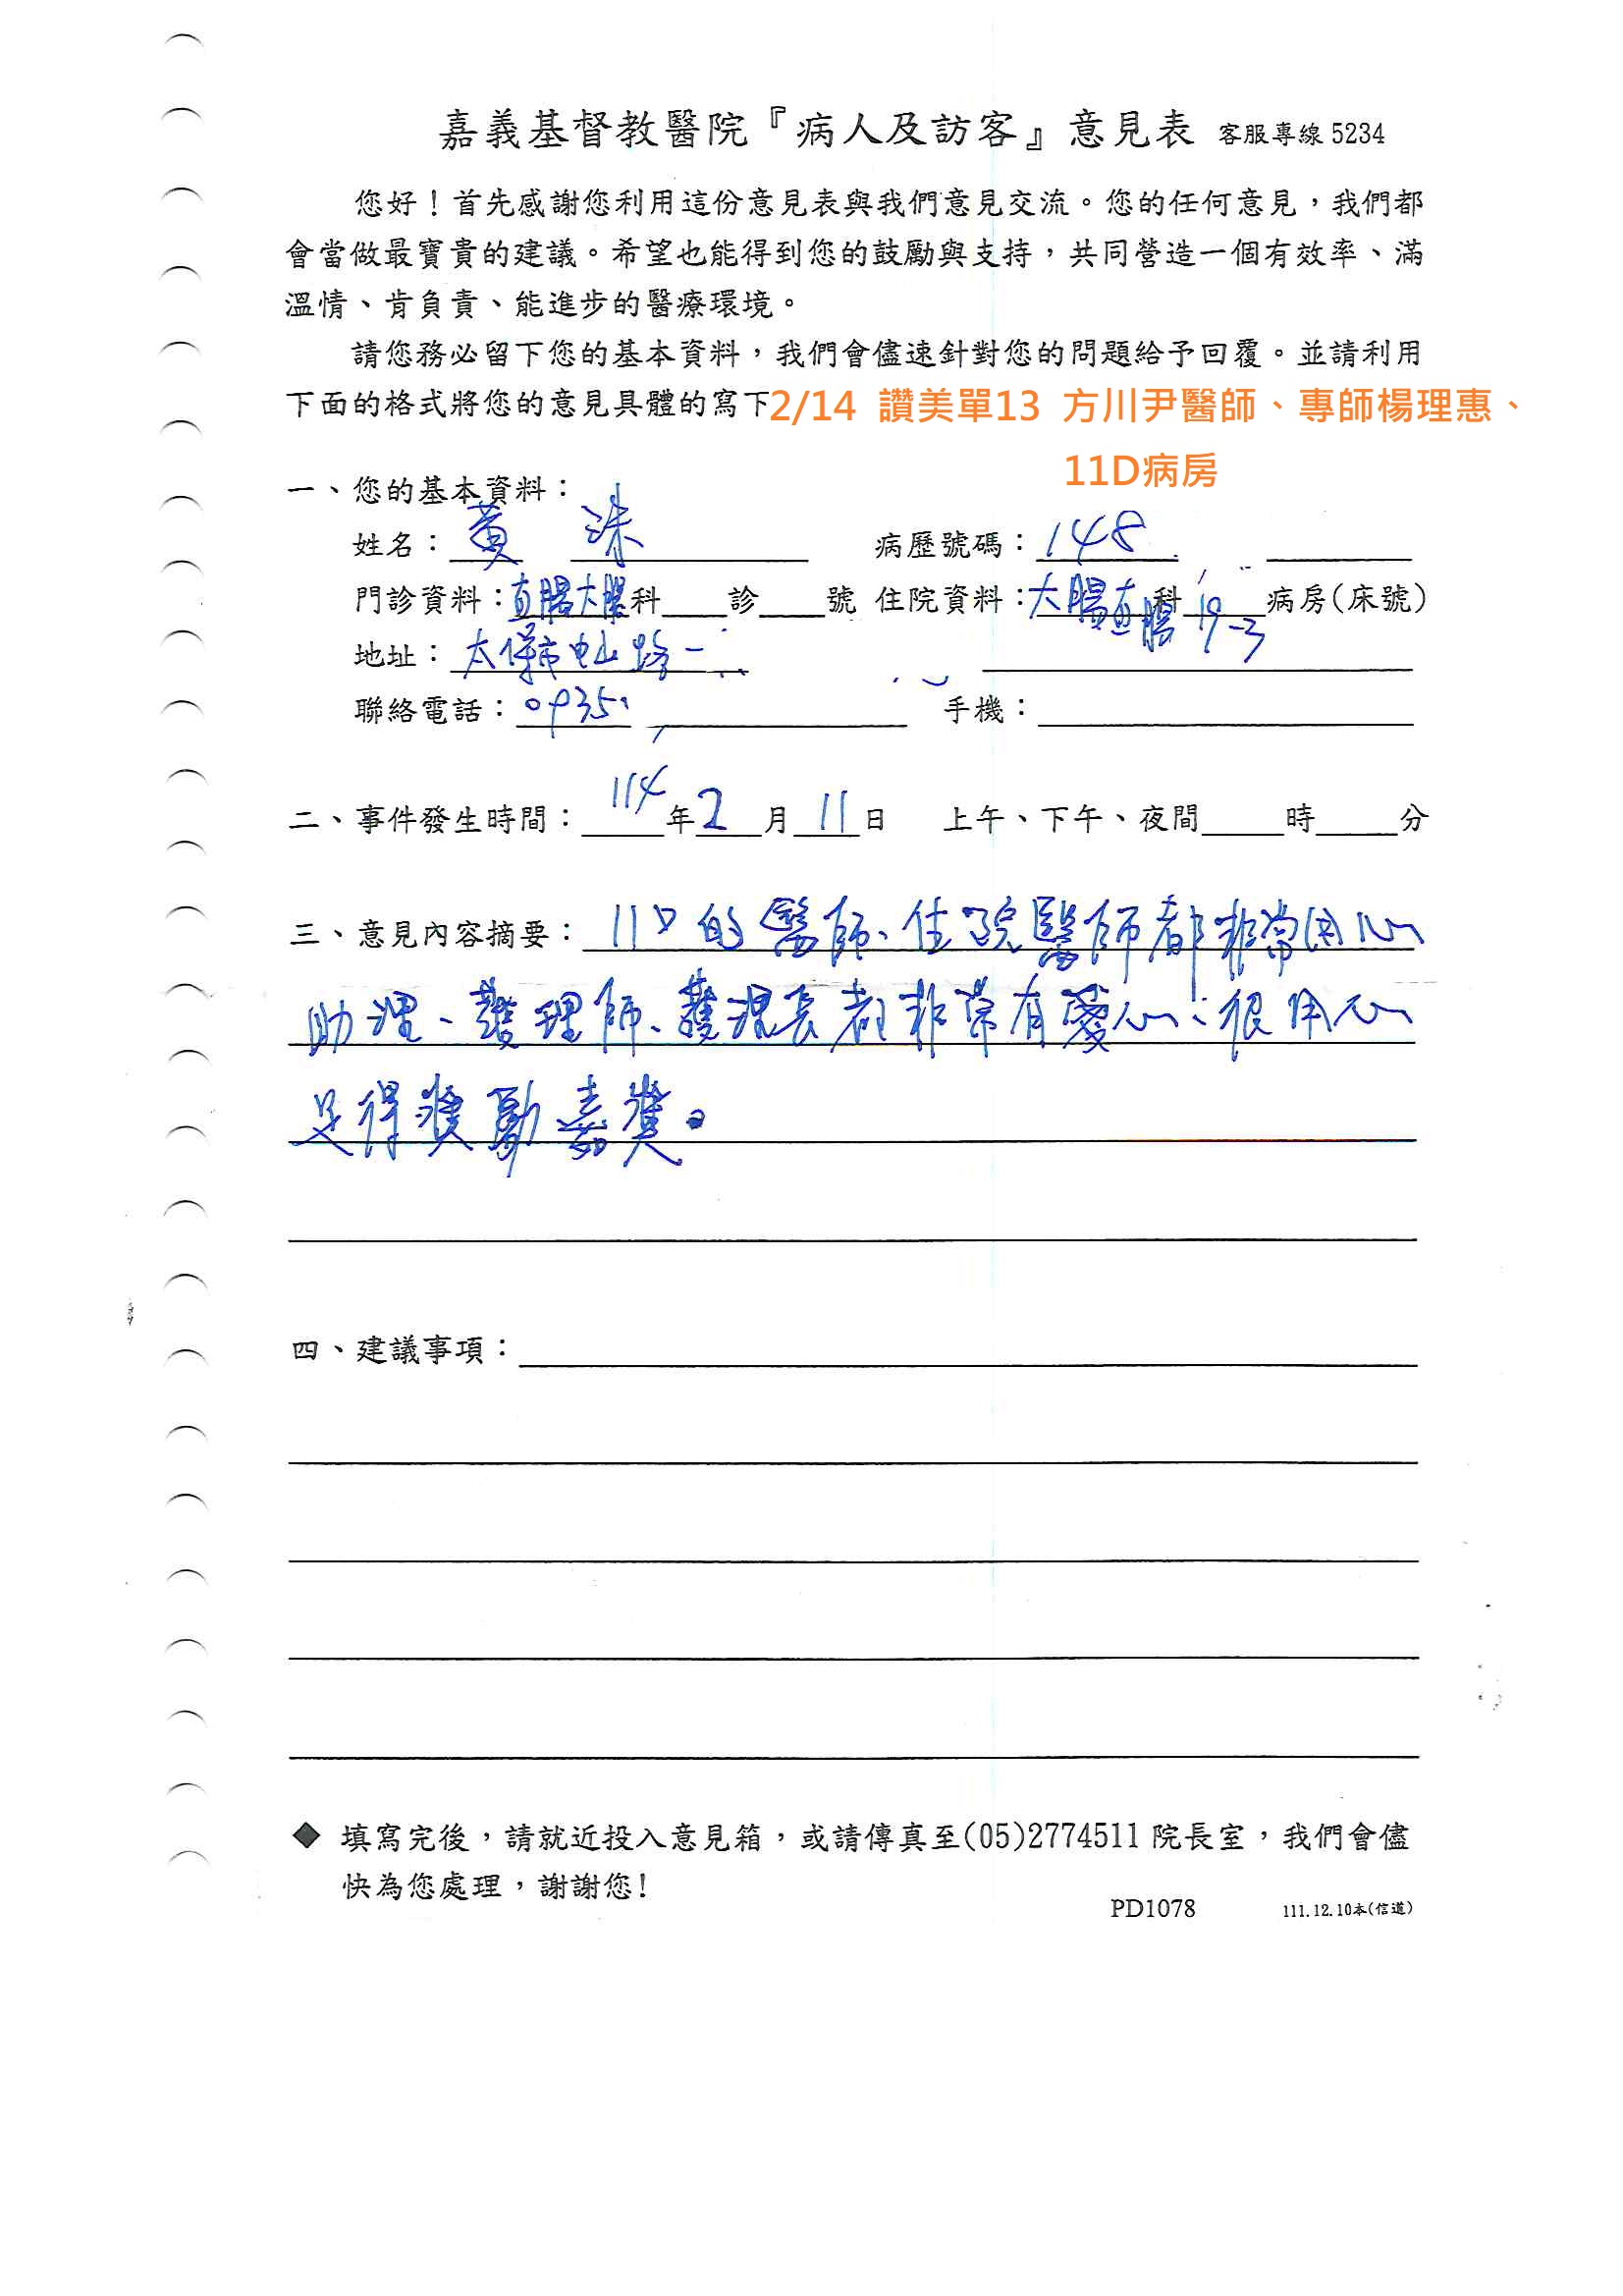 嘉義基督教醫院『病人及訪客』意見表 客服專線 5234
您好！首先感謝您利用這份意見表與我們意見交流。您的任何意見，我們都
會當做最寶貴的建議。希望也能得到您的鼓勵與支持，共同營造一個有效率、滿
溫情、肯負責、能進步的醫療環境。
請您務必留下您的基本資料，我們會儘速針對您的問題給予回覆。並請利用
下面的格式將您的意見具體的寫下
2/14 讚美單13 方川尹醫師、專師楊理惠、
11D病房
一、您的基本資料：
姓名：黃 洙 病歷號碼：148
門診資料：直腸大腸科 診 號 住院資料：大腸直腸科 19-3 病房(床號)
地址：太保市中山路一
聯絡電話：0935 手機：
二、事件發生時間：114年2月11日 上午、下午、夜間 時 分
三、意見內容摘要：11D的醫師、住院醫師都非常用心
助理、護理師、護理長都非常有愛心、很用心
足得獎勵嘉獎。
四、建議事項：
◆ 填寫完後，請就近投入意見箱，或請傳真至(05)2774511 院長室，我們會儘
快為您處理，謝謝您！
PD1078 111.12.10本(信道)